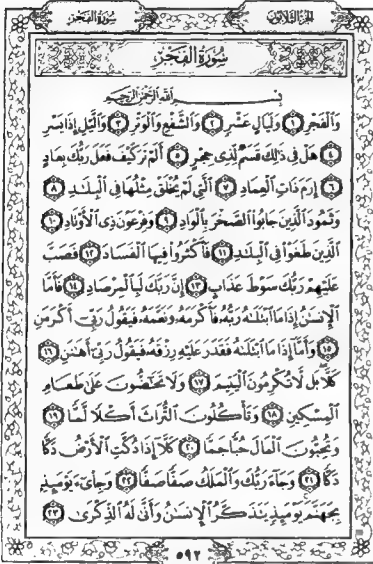 الجزء الثلاثون
سورة الفجر
سُورَةُ الفَجْرِ
بِسْمِ اللَّهِ الرَّحْمَٰنِ الرَّحِيمِ
وَالْفَجْرِ ١ وَلَيَالٍ عَشْرٍ ٢ وَالشَّفْعِ وَالْوَتْرِ ٣ وَاللَّيْلِ إِذَا يَسْرِ
٤ هَلْ فِي ذَٰلِكَ قَسَمٌ لِّذِي حِجْرٍ ٥ أَلَمْ تَرَ كَيْفَ فَعَلَ رَبُّكَ بِعَادٍ
٦ إِرَمَ ذَاتِ الْعِمَادِ ٧ الَّتِي لَمْ يُخْلَقْ مِثْلُهَا فِي الْبِلَادِ ٨
وَثَمُودَ الَّذِينَ جَابُوا الصَّخْرَ بِالْوَادِ ٩ وَفِرْعَوْنَ ذِي الْأَوْتَادِ ١٠
الَّذِينَ طَغَوْا فِي الْبِلَادِ ١١ فَأَكْثَرُوا فِيهَا الْفَسَادَ ١٢ فَصَبَّ
عَلَيْهِمْ رَبُّكَ سَوْطَ عَذَابٍ ١٣ إِنَّ رَبَّكَ لَبِالْمِرْصَادِ ١٤ فَأَمَّا
الْإِنسَٰنُ إِذَا مَا ابْتَلَىٰهُ رَبُّهُ فَأَكْرَمَهُ وَنَعَّمَهُ فَيَقُولُ رَبِّي أَكْرَمَنِ
١٥ وَأَمَّا إِذَا مَا ابْتَلَىٰهُ فَقَدَرَ عَلَيْهِ رِزْقَهُ فَيَقُولُ رَبِّي أَهَٰنَنِ ١٦
كَلَّا بَل لَّا تُكْرِمُونَ الْيَتِيمَ ١٧ وَلَا تَحَٰضُّونَ عَلَىٰ طَعَامِ
الْمِسْكِينِ ١٨ وَتَأْكُلُونَ التُّرَاثَ أَكْلًا لَّمًّا ١٩
وَتُحِبُّونَ الْمَالَ حُبًّا جَمًّا ٢٠ كَلَّا إِذَا دُكَّتِ الْأَرْضُ دَكًّا
دَكًّا ٢١ وَجَاءَ رَبُّكَ وَالْمَلَكُ صَفًّا صَفًّا ٢٢ وَجِاْيءَ يَوْمَئِذٍ
بِجَهَنَّمَ يَوْمَئِذٍ يَتَذَكَّرُ الْإِنسَٰنُ وَأَنَّىٰ لَهُ الذِّكْرَىٰ ٢٣
٥٩٢